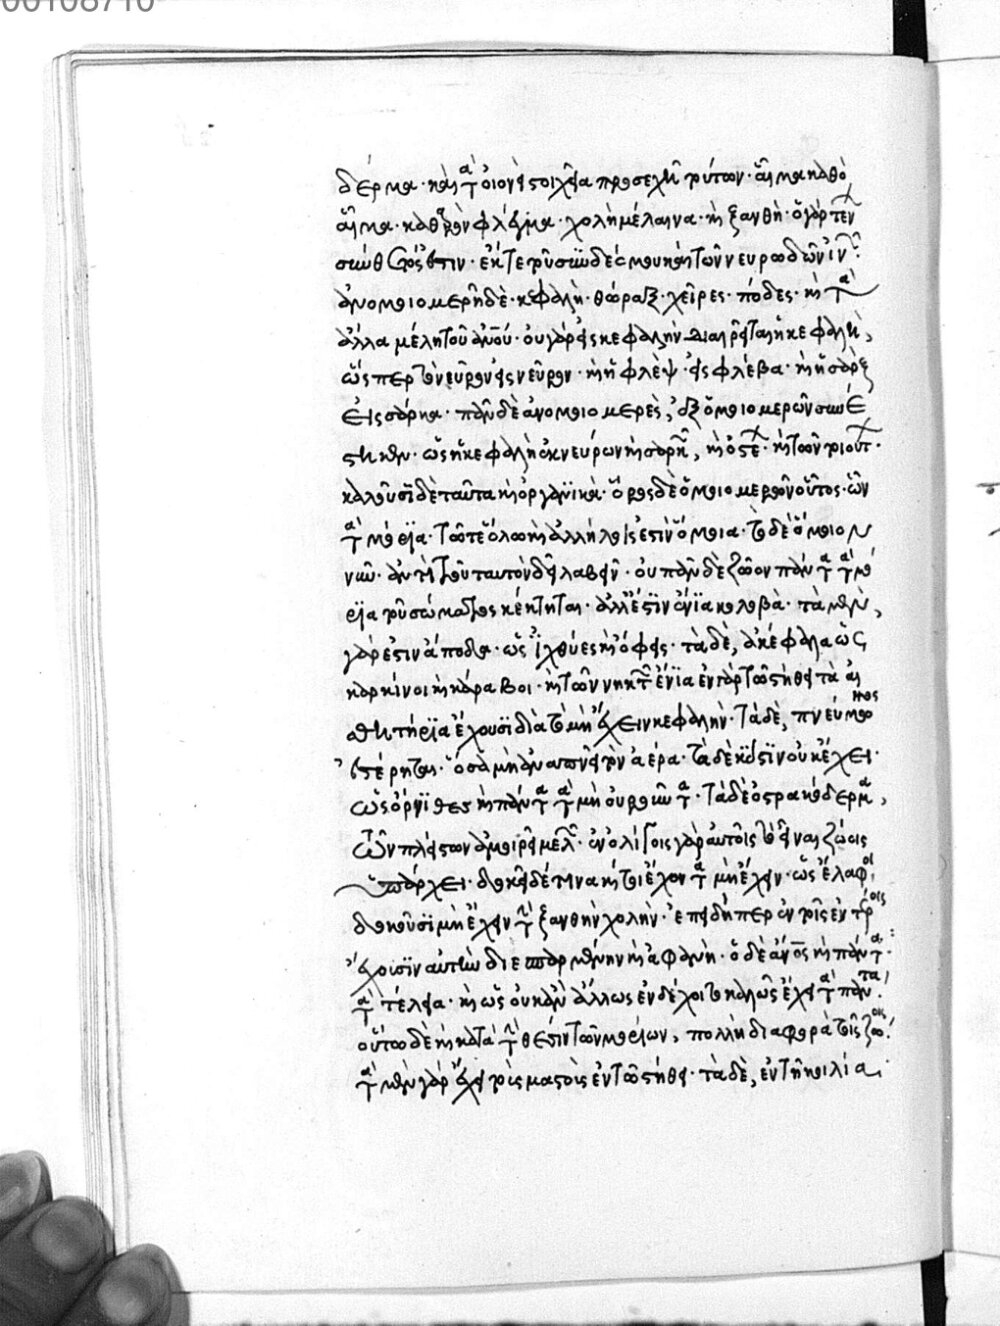 00108710
δέρμα· καὶ τὰ οἱονεὶ στοιχεῖα προσεχῆ τούτων· αἷμα καθὸ
αἷμα· καθαρὸν φλέγμα· χολὴ μέλαινα· καὶ ξανθὴ· ὁ γάρ τεν
ἐστιν· ἐκ τε τοῦ μου καὶ τῶν νευρωδῶν ἰν
ἀνομοιομερῆ δὲ· κεφαλὴ· θώραξ· χεῖρες· πόδες· καὶ τὰ
ἄλλα μέλη τοῦ ἀνου· οὐ γάρ εἰς κεφαλὴν διαιρεῖται ἡ κεφαλὴ,
ὥσπερ τὸ νεῦρον εἰς νεῦρον· καὶ ἡ φλὲψ· εἰς φλέβα· καὶ ἡ σάρξ
εἰς σάρκα· πᾶν δὲ ἀνομοιομερὲς, ἐξ ὁμοιομερῶν συνέ
στηκεν· ὡς ἡ κεφαλὴ ἐκ νεύρων καὶ σαρκ, καὶ ὀστέ· καὶ τῶν τοιούτ·
καλοῦσι δὲ ταῦτα καὶ ὀργανικά· ὅρος δὲ ὁμοιομερῶν οὗτος· ὧν
τὰ μόρια· τῶ τε ὅλω καὶ ἀλλήλοις ἐστὶν ὅμοια· τὸ δὲ ὅμοιον
νῦν· ἀντὶ τοῦ ταυτὸν δεῖ λαβεῖν· οὐ πᾶν δὲ ζῶον πάντα τὰ μό
ρια τοῦ σώματος κέκτηται· ἀλλ' ἔστιν ἔνια κολοβὰ· τὰ μὲν,
γάρ ἐστιν ἄποδα· ὡς ἰχθύες καὶ ὄφεις· τὰ δὲ, ἀκέφαλα ὡς
καρκίνοι καὶ κάραβοι· καὶ τῶν νηκτ ἔνια ἐν γὰρ τῶ στήθει τὰ αἰ
σθητήρια ἔχουσι διὰ τὸ μὴ ἔχειν κεφαλὴν· τὰ δὲ, πνεύμονος
ἐστέρηται· ὅσα μὴ ἀναπνεῖ τὸν ἀέρα· τὰ δὲ κύστιν οὐκ ἔχει·
ὡς ὄρνιθες καὶ πάντα τὰ μὴ οὐροῦντα· τὰ δὲ ὀστρακόδερμα,
τῶν πλείστων ἀμοιρεῖ μελ· ἐν ὀλίγοις γὰρ αὐτοῖς τὸ εἶναι ζώοις
ὑπάρχει· δοκεῖ δέ τινα καί τι ἔχοντα μὴ ἔχειν· ὡς ἔλαφοι,
δοκοῦσι μὴ ἔχειν τὴν ξανθὴν χολὴν· ἐπειδήπερ ἐν τοῖς ἐντέροις
ἔχουσιν αὐτὴν διεσπαρμένην καὶ ἀφανῆ· ὁ δὲ ἀνος καὶ πάντα
τὰ τέλεια· καὶ ὡς οὐκ ἂν ἄλλως ἐνδέχοιτο καλῶς ἔχει τὰ πάντα
οὕτω δὲ καὶ κατὰ τὴν θέσιν τῶν μορίων, πολλὴ διαφορὰ τοῖς ζώοις
τὰ μὲν γὰρ ἔχει τοὺς μαστοὺς ἐν τῶ στήθει· τὰ δὲ, ἐν τῆ κοιλία